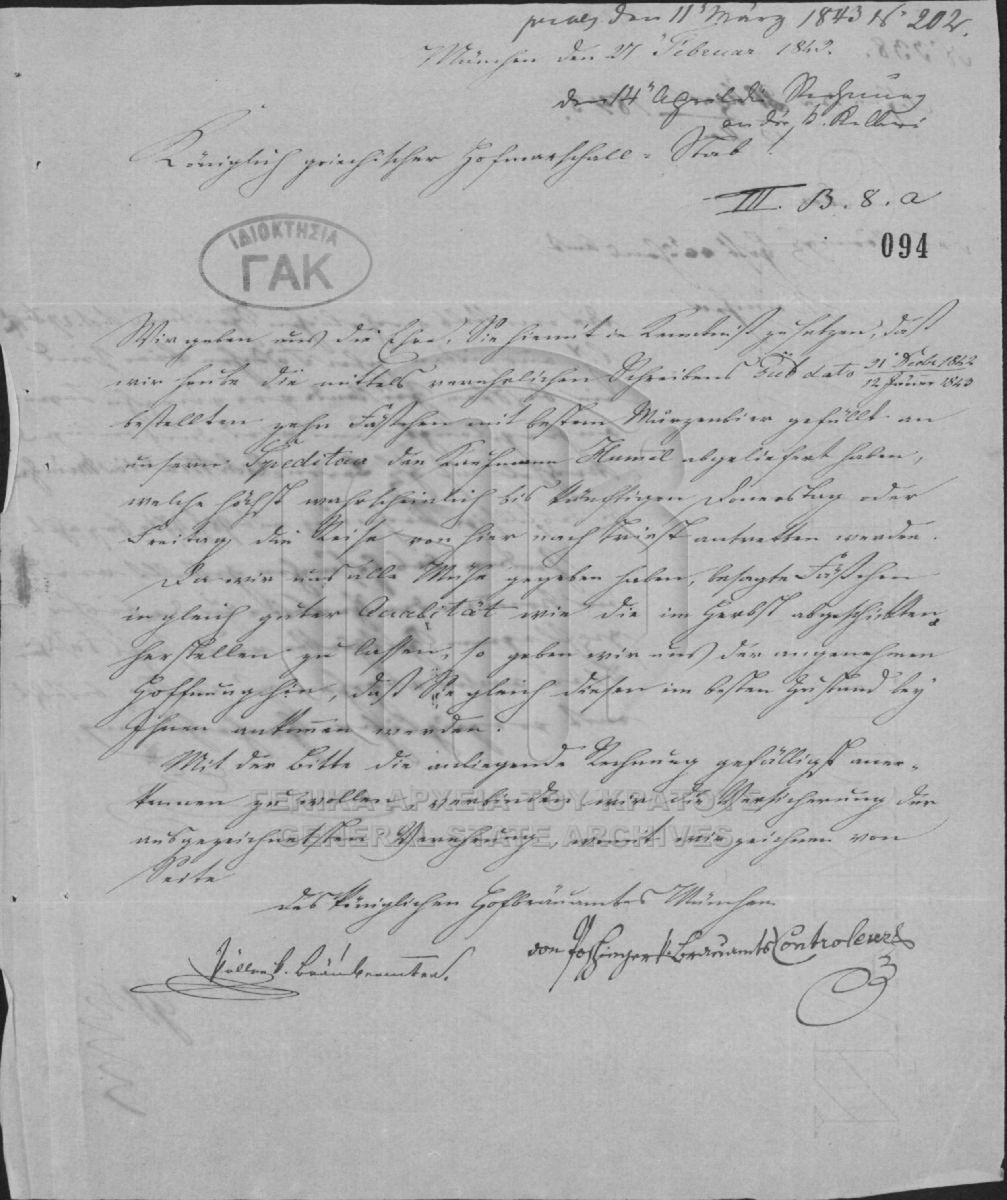 praes den 11' März 1843 No 202.
München den 27' Februar 1843.
den 14' April die Rechnung
an die k. Kellerei
Königlich griechischer Hofmarschall-Stab!
III. B. 8. a
094
ΙΔΙΟΚΤΗΣΙΑ
ΓΑΚ
Wir geben uns die Ehre, Sie hiemit in Kenntniß zu setzen, daß
wir heute die mittels verehrlichen Schreibens sub dato 31' Decbr 1842
12 Jäner 1843
bestellten zehn Fäßchen mit bestem Märzenbier gefüllt an
unsern Spediteur den Kaufmann Humel abgeliefert haben,
welche höchst wahrscheinlich bis künftigen Donerstag oder
Freitag die Reise von hier nach Triest antretten werden.
Da wir uns alle Mühe gegeben haben, besagte Fäßchen
in gleich guter Qualität wie die im Herbst abgeschickten
herstellen zu lassen, so geben wir uns der angenehmen
Hoffnung hin, daß Sie gleich diesen im besten Zustand bey
Ihnen ankommen werden.
Mit der Bitte die anliegende Rechnung gefälligst aner-
kennen zu wollen verbinden wir die Versicherung der
ausgezeichnetsten Verehrung, womit wir zeichnen von
Seite
des königlichen Hofbräuamtes München
k. Bräubeamter.
von k. Brauamts Controleur
ΓΕΝΙΚΑ ΑΡΧΕΙΑ ΤΟΥ ΚΡΑΤΟΥΣ
GENERAL STATE ARCHIVES